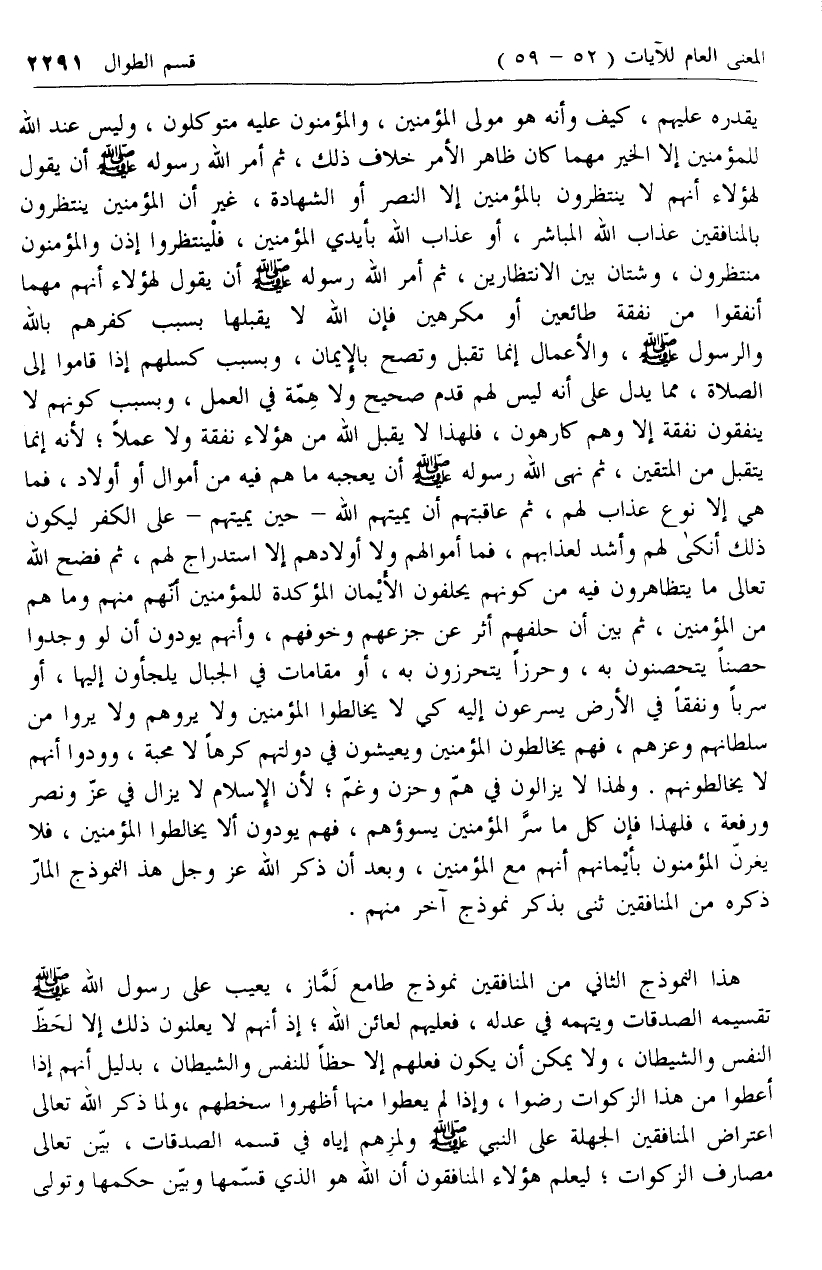 المعنى العام للآيات ( ٥٢ – ٥٩ ) قسم الطوال ٢٢٩١
يقدره عليهم ، كيف وأنه هو مولى المؤمنين ، والمؤمنون عليه متوكلون ، وليس عند الله
للمؤمنين إلا الخير مهما كان ظاهر الأمر خلاف ذلك ، ثم أمر الله رسوله ﷺ أن يقول
لهؤلاء أنهم لا ينتظرون بالمؤمنين إلا النصر أو الشهادة ، غير أن المؤمنين ينتظرون
بالمنافقين عذاب الله المباشر ، أو عذاب الله بأيدي المؤمنين ، فلْينتظروا إذن والمؤمنون
منتظرون ، وشتان بين الانتظارين ، ثم أمر الله رسوله ﷺ أن يقول لهؤلاء أنهم مهما
أنفقوا من نفقة طائعين أو مكرهين فإن الله لا يقبلها بسبب كفرهم بالله
والرسول ﷺ ، والأعمال إنما تقبل وتصح بالإيمان ، وبسبب كسلهم إذا قاموا إلى
الصلاة ، مما يدل على أنه ليس لهم قدم صحيح ولا هِمّة في العمل ، وبسبب كونهم لا
ينفقون نفقة إلا وهم كارهون ، فلهذا لا يقبل الله من هؤلاء نفقة ولا عملاً ؛ لأنه إنما
يتقبل من المتقين ، ثم نهى الله رسوله ﷺ أن يعجبه ما هم فيه من أموال أو أولاد ، فما
هي إلا نوع عذاب لهم ، ثم عاقبتهم أن يميتهم الله – حين يميتهم – على الكفر ليكون
ذلك أنكىٰ لهم وأشد لعذابهم ، فما أموالهم ولا أولادهم إلا استدراج لهم ، ثم فضح الله
تعالى ما يتظاهرون فيه من كونهم يحلفون الأَيْمان المؤكدة للمؤمنين أنّهم منهم وما هم
من المؤمنين ، ثم بين أن حلفهم أثر عن جزعهم وخوفهم ، وأنهم يودون أن لو وجدوا
حصناً يتحصنون به ، وحرزاً يتحرزون به ، أو مقامات في الجبال يلجأون إليها ، أو
سرباً ونفقاً في الأرض يسرعون إليه كي لا يخالطوا المؤمنين ولا يروهم ولا يروا من
سلطانهم وعزهم ، فهم يخالطون المؤمنين ويعيشون في دولتهم كرهاً لا محبة ، وودوا أنهم
لا يخالطونهم . ولهذا لا يزالون في همّ وحزن وغمّ ؛ لأن الإسلام لا يزال في عزّ ونصر
ورفعة ، فلهذا فإن كل ما سرَّ المؤمنين يسوؤهم ، فهم يودون ألا يخالطوا المؤمنين ، فلا
يغرنّ المؤمنون بأيْمانهم أنهم مع المؤمنين ، وبعد أن ذكر الله عز وجل هذ النموذج المارّ
ذكره من المنافقين ثنى بذكر نموذج آخر منهم .
هذا النموذج الثاني من المنافقين نموذج طامع لَمَّاز ، يعيب على رسول الله ﷺ
تقسيمه الصدقات ويتهمه في عدله ، فعليهم لعائن الله ؛ إذ أنهم لا يعلنون ذلك إلا لحَظّ
النفس والشيطان ، ولا يمكن أن يكون فعلهم إلا حظاً للنفس والشيطان ، بدليل أنهم إذا
أعطوا من هذا الزكوات رضوا ، وإذا لم يعطوا منها أظهروا سخطهم ،ولما ذكر الله تعالى
اعتراض المنافقين الجهلة على النبي ﷺ ولمزِهم إياه في قسمه الصدقات ، بيّن تعالى
مصارف الزكوات ؛ ليعلم هؤلاء المنافقون أن الله هو الذي قسّمها وبيّن حكمها وتولى